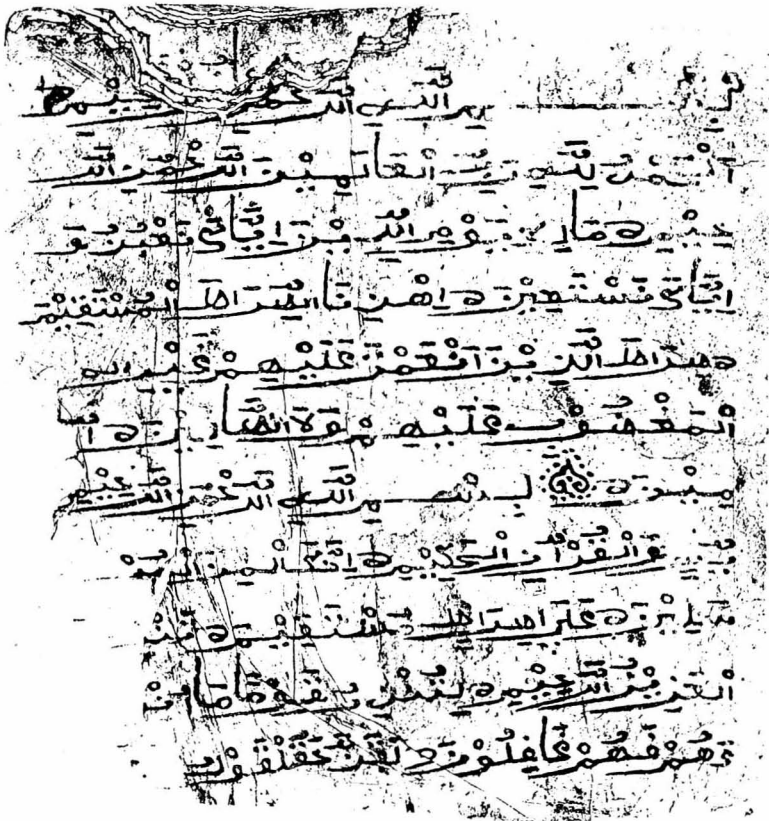 بسم الله الرحمن الرحيم
الحمد لله رب العالمين الرحمن الر
حيم ه مالك يوم الدين اياك نعبد و
اياك نستعين ه اهدنا الصراط المستقيم
ه صراط الذين انعمت عليهم غير
المغضوب عليهم ولا الضالين ه ا
مين ه بسم الله الرحمن الرحيم
يس والقرآن الحكيم ه انك لمن المر
سلين ه على صراط مستقيم ه
العزيز الرحيم ه لتنذر قوما ما
هم فهم غافلون ه لقد حق القول